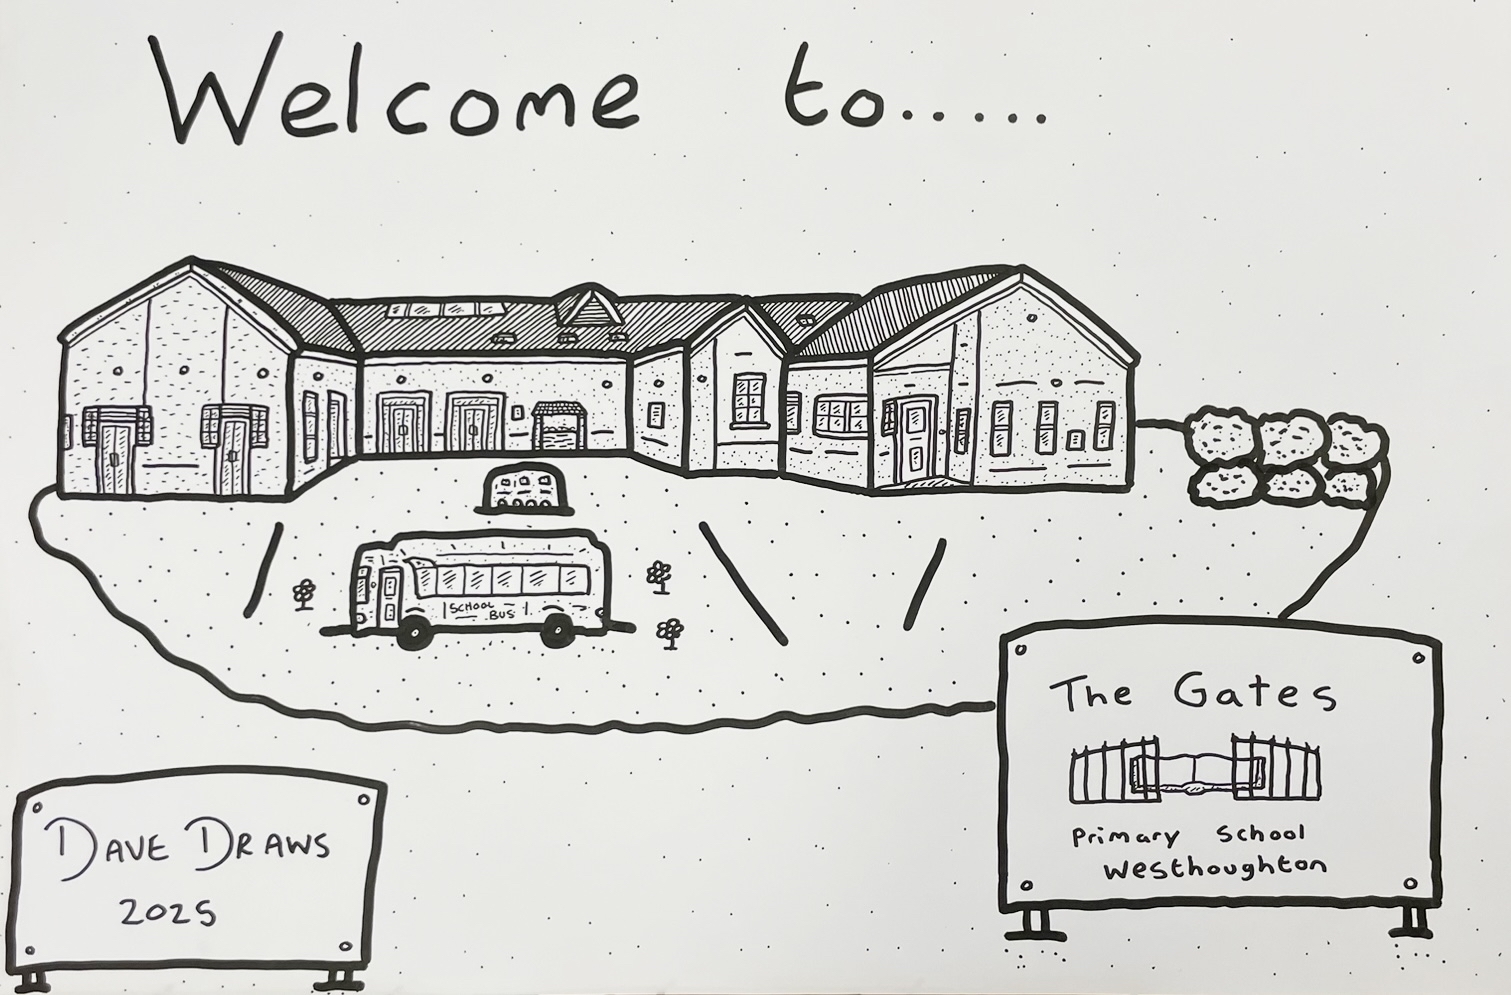 Welcome to.....
SCHOOL
BUS
The Gates
Primary School
Westhoughton
DAVE DRAWS
2025